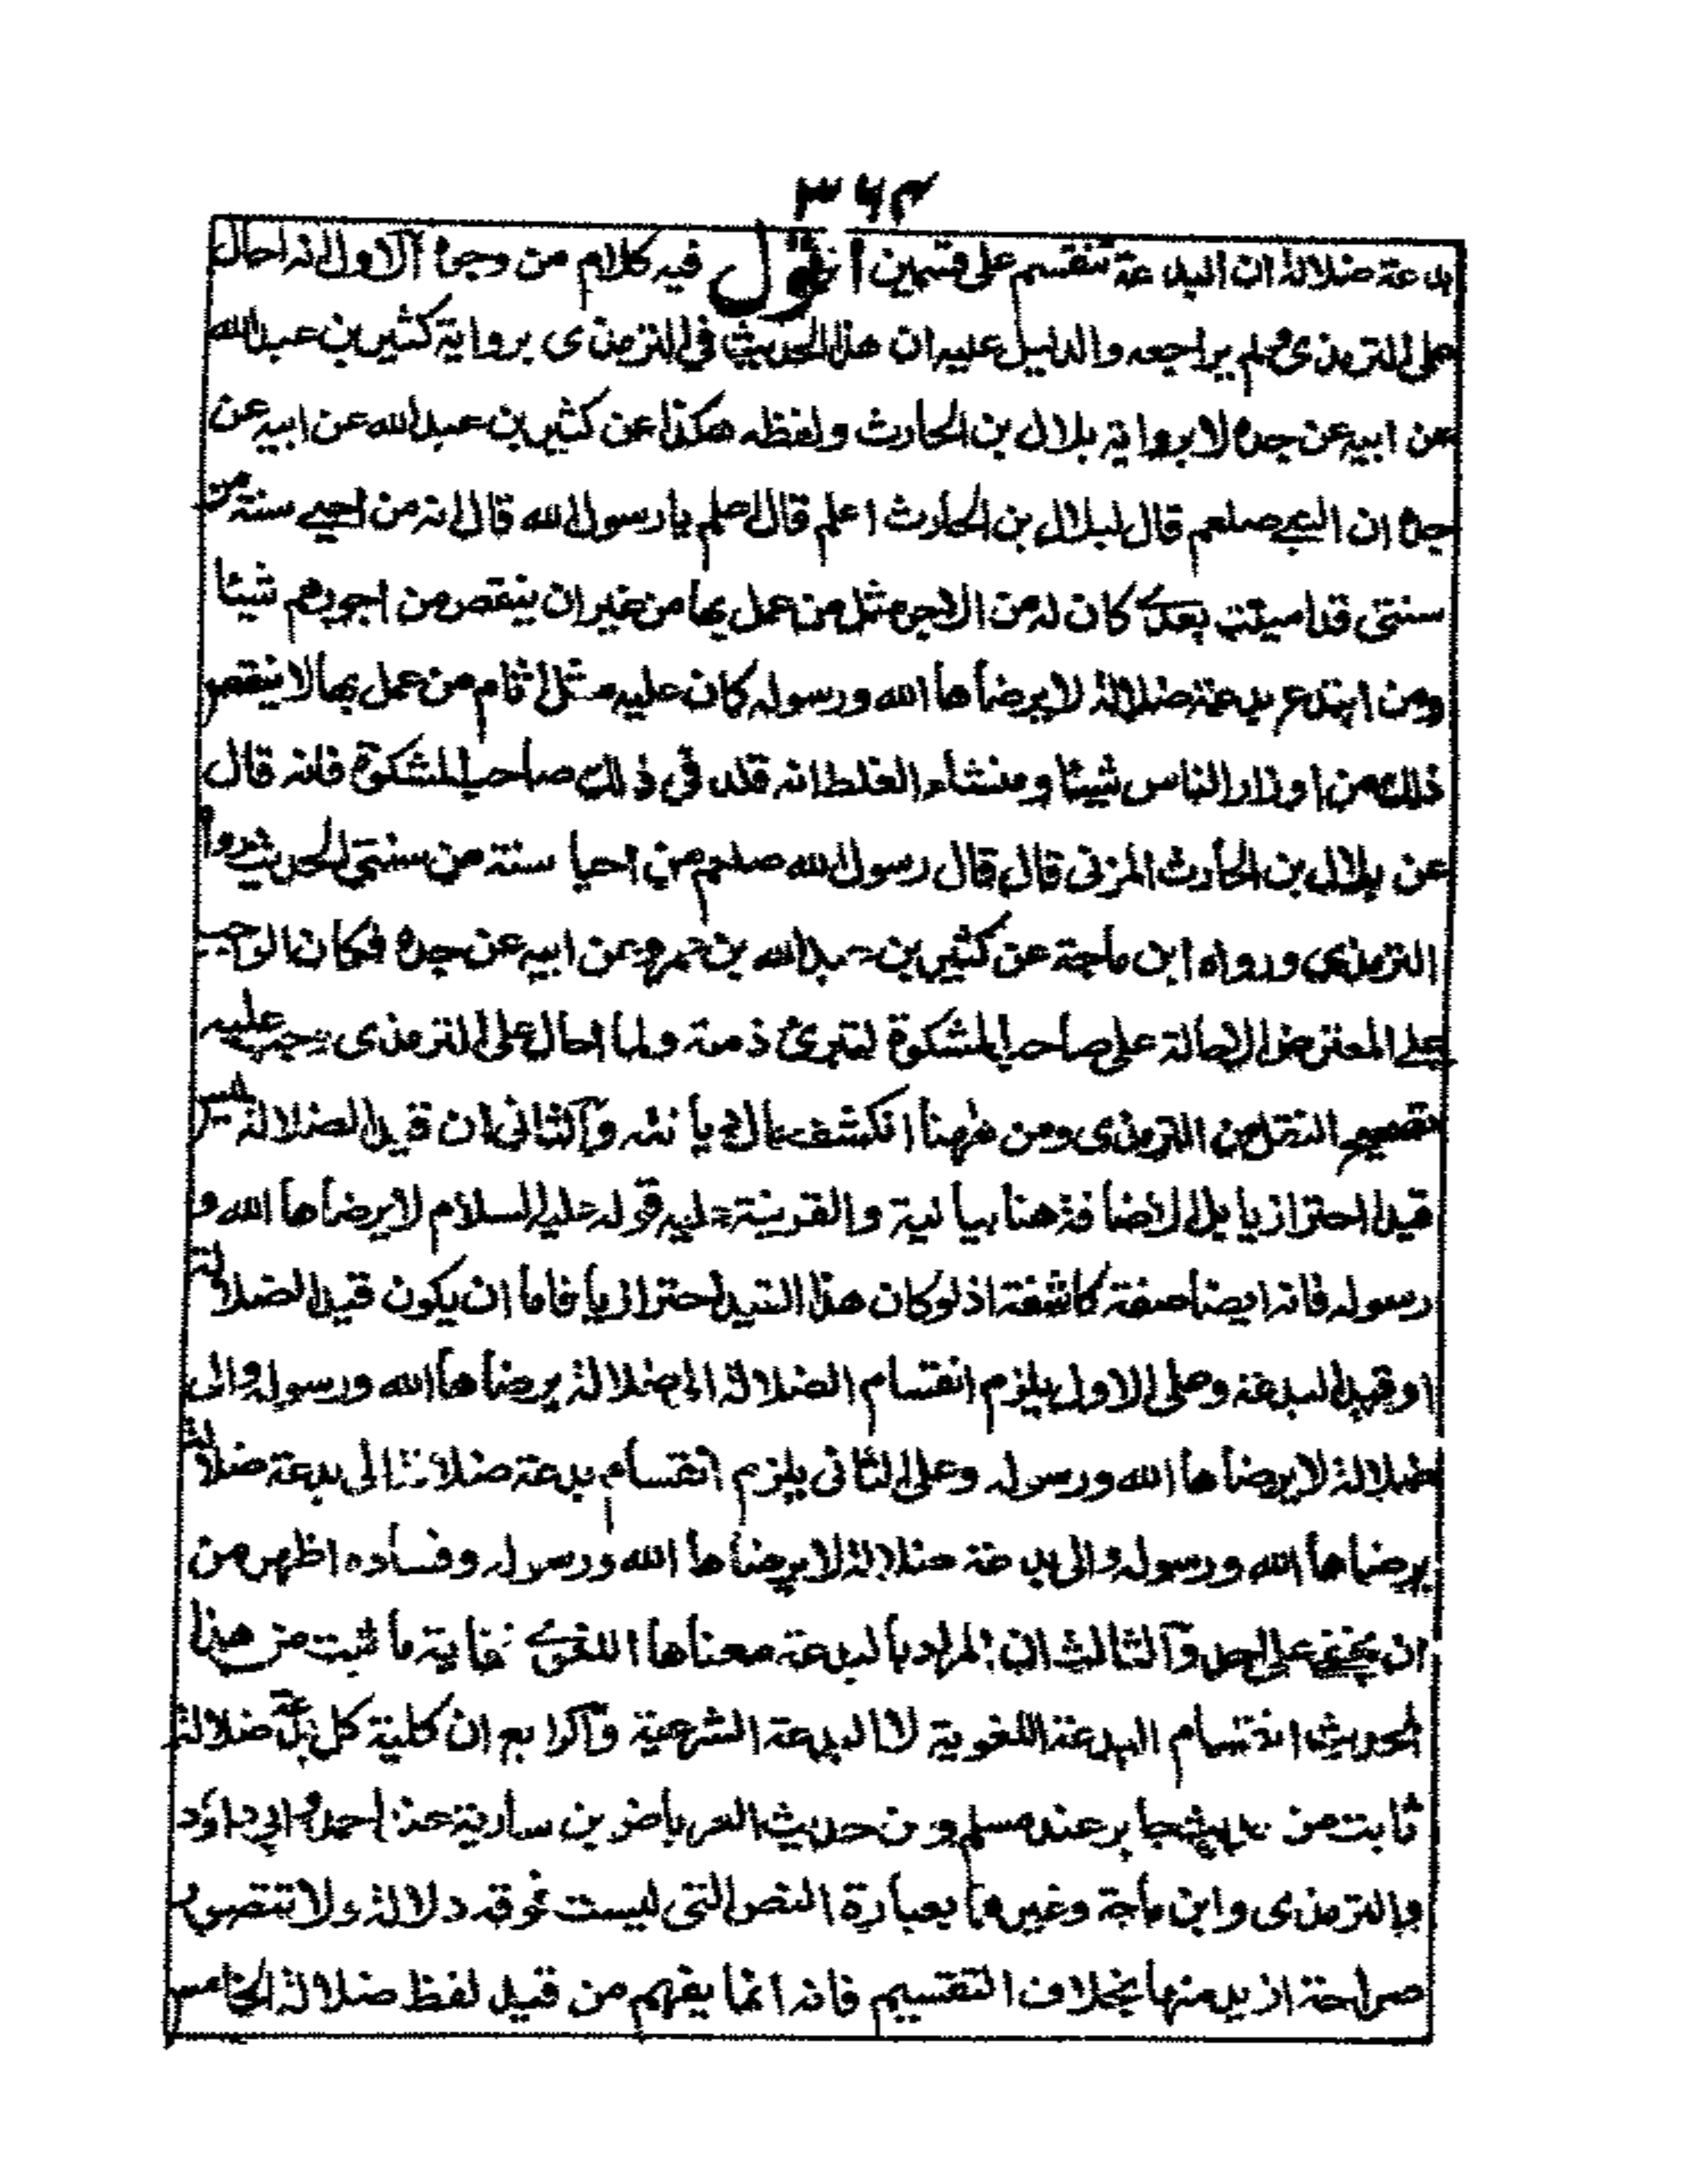 ۳۶۴
بدعة ضلالة ان البدعة تنقسم على قسمين انتهى اقول فيه كلام من وجوه الاول انه احال
على الترمذى ولم يراجعه والدليل عليه ان هذا الحديث فى الترمذى برواية كثير بن عبد الله
عن ابيه عن جده لا برواية بلال بن الحارث ولفظه هكذا عن كثير بن عبد الله عن ابيه عن
جده ان النبى صلعم قال لبلال بن الحارث اعلم قال اعلم يا رسول الله قال انه من احيى سنة من
سنتى قد اميتت بعدى كان له من الاجر مثل من عمل بها من غير ان ينقص من اجورهم شيئا
ومن ابتدع بدعة ضلالة لا يرضاها الله ورسوله كان عليه مثل اثام من عمل بها لا ينقص
ذلك من اوزار الناس شيئا ومنشاء الغلط انه قلد فى ذلك صاحب المشكوة فانه قال
عن بلال بن الحارث المزنى قال قال رسول الله صلعم من احيا سنة من سنتى الحديث رواه
الترمذى ورواه ابن ماجة عن كثير بن عبد الله بن عمرو عن ابيه عن جده فكان الواجب
على المعترض الاحالة على صاحب المشكوة لتبرئ ذمته ولما احال على الترمذى يجب عليه
تصحيح النقل من الترمذى ومن ههنا انكشف حال ديانته والثانى ان قيد الضلالة ليس
قيدا احترازيا بل الاضافة هنا بيانية والقرينة عليه قوله عليه السلام لا يرضاها الله و
رسوله فانه ايضا صفة كاشفة اذ لو كان هذا القيد احترازيا فاما ان يكون قيد الضلالة
او قيد البدعة وعلى الاول يلزم انقسام الضلالة الى ضلالة يرضاها الله ورسوله والى
ضلالة لا يرضاها الله ورسوله وعلى الثانى يلزم انقسام بدعة ضلالة الى بدعة ضلالة
يرضاها الله ورسوله والى بدعة ضلالة لا يرضاها الله ورسوله وفساده اظهر من
ان يخفى على احد والثالث ان المراد بالبدعة معناها اللغوى فغاية ما ثبت من هذا
الحديث انقسام البدعة اللغوية لا البدعة الشرعية والرابع ان كلية كل بدعة ضلالة
ثابت من حديث جابر عند مسلم ومن حديث العرباض بن سارية عند احمد وابى داؤد
والترمذى وابن ماجة وغيرها بعبارة النص التى ليست فوقه دلالة ولا تتصور
صراحة ازيد منها بخلاف التقسيم فانه انما يفهم من قيد لفظ ضلالة الخامس